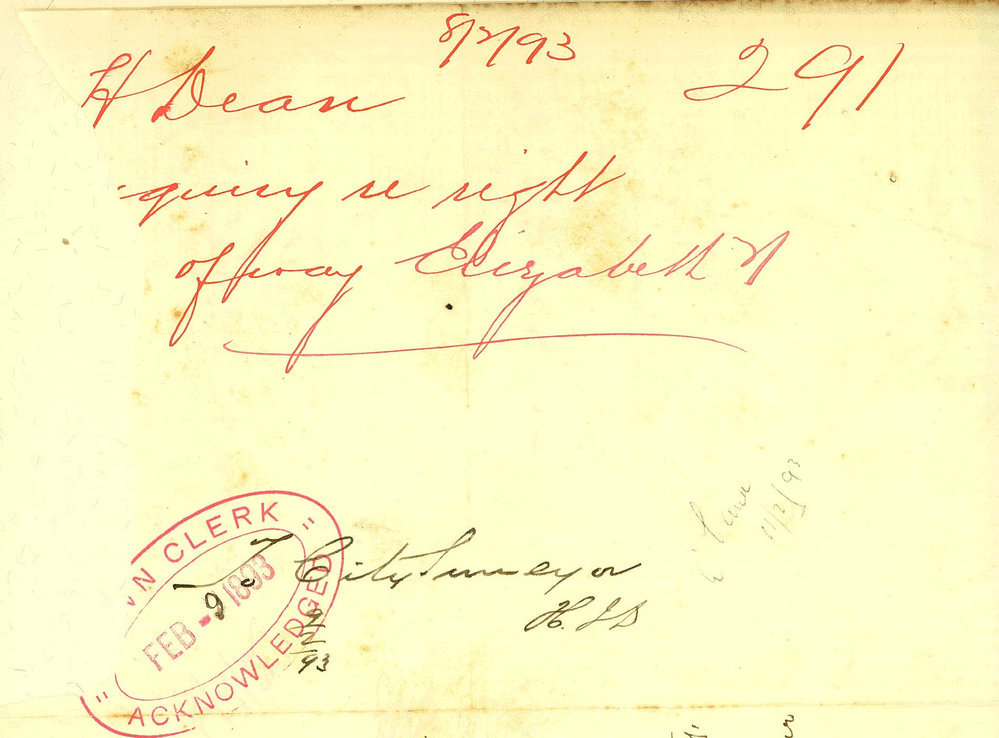 8/2/93
H Dean 291
quiry re right
of way Elizabeth St
"N CLERK"
FEB - 9 1893
"ACKNOWLEDGED
To City Surveyor
H.
9/2/93
11/2/93